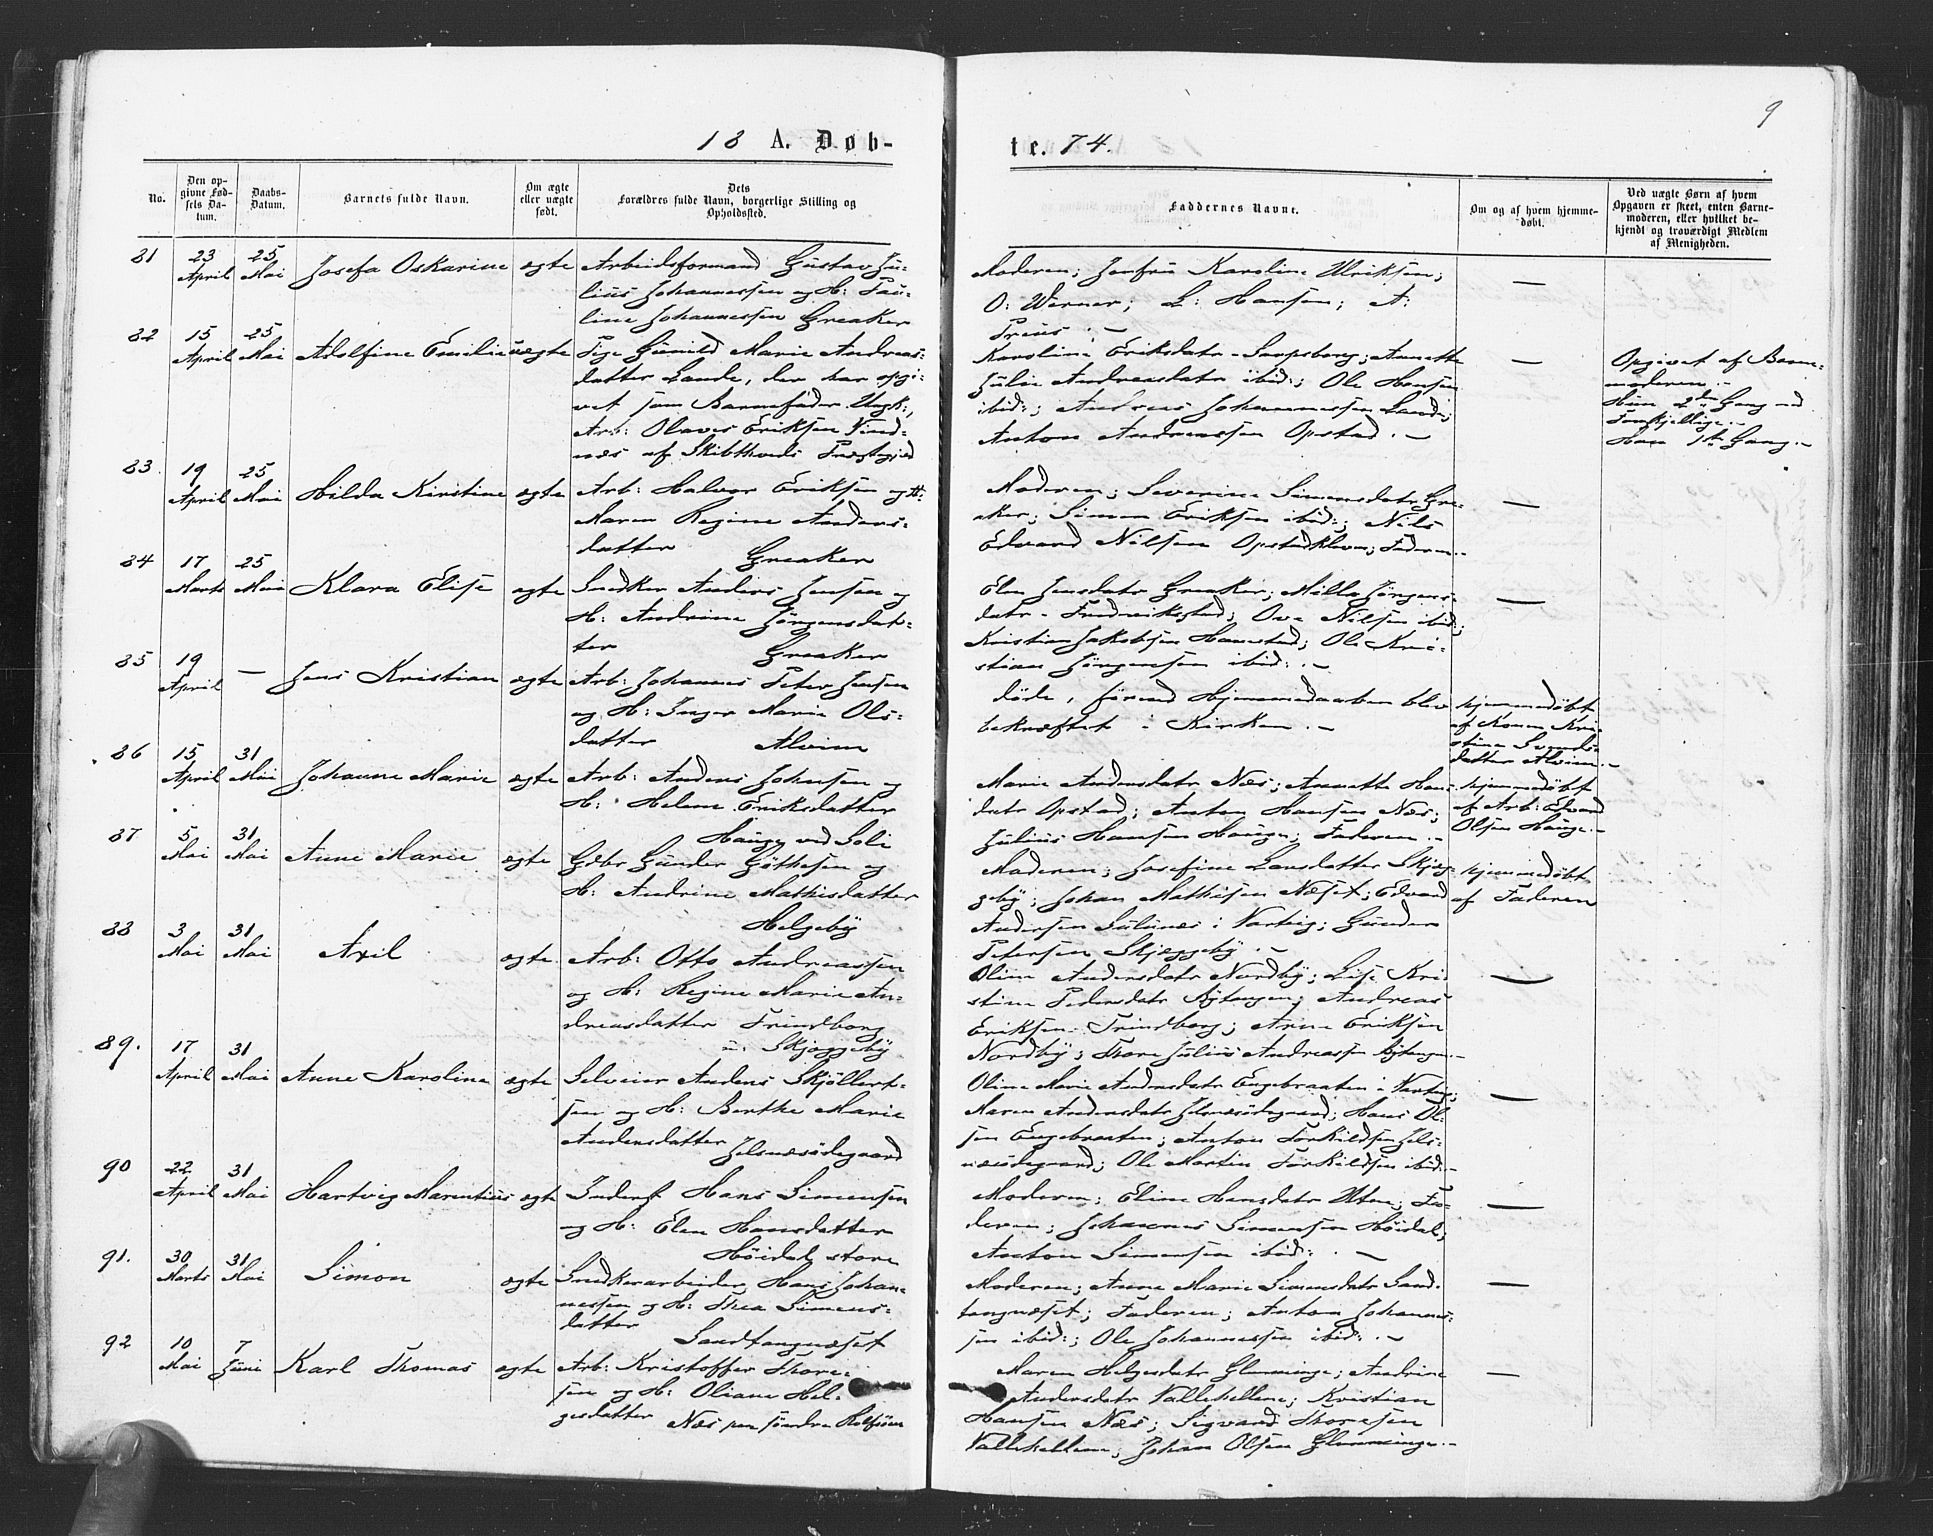 9
18 A. Døb-
te. 74.
No.
Den op-
givne Fød-
sels Da-
tum.
Daabs-
Datum.
Barnets fulde Navn.
Om ægte
eller uægte
født.
Dets
Forældres fulde Navn, borgerlige Stilling og
Opholdssted.
Faddernes Navne.
Om og af hvem hjemme-
døbt.
Ved uægte Børn af hvem
Opgaven er skeet, enten Barne-
moderen, eller hvilket be-
kjendt og troværdigt Medlem
af Menigheden.
81 23 April 25 Mai Josefa Oskarine ægte
Arbeidsformand Gustav Ju-
lius Johannessen og H: Pau-
line Johannessen Greaker
Moderen; Jomfru Karoline Ulriksen;
O: Werner; L: Hansen; A:
Preus. —
—
82 15 April 25 Mai Adolfine Emilie uægte
Pige Gunild Marie Andreas-
datter Lande, der har opgi-
vet som Barnefader Ungk:,
Arb: Olaves Eriksen Vind-
næs af Skibthveds Præstegjed
Karoline Eriksdatr Sarpsborg; Annette
Julie Andreasdatr ibid:; Ole Hansen
ibid:; Andreas Johannessen Lande;
Anton Andreassen Opstad. —
—
Opgivet af Barne-
moderen. —
Hun 2den Gang ved
Forskjellige. —
Han 1ste Gang. —
83. 19 April 25 Mai Hilda Kirstine ægte
Arb: Halvor Eriksen og H:
Maren Regine Anders-
datter Greaker
Moderen; Severine Simensdatr Gre-
aker; Simen Eriksen ibid:; Nils
Edvard Nilsen Opstadkleven; Faderen. —
—
84 17 Marts 25 Mai Klara Elise ægte
Snedker Anders Jensen og
H: Andrine Jörgensdat-
ter Greaker
Elen Jensdatr Greaker; Milla Jörgens-
datr Fredrikstad; Ove Nilsen ibid:;
Kristian Jakobsen Hannestad; Ole Kri-
stian Jörgensen ibid: —
—
85 19 April — Jens Kristian ægte
Arb: Johannes Peter Jensen
og H: Inger Marie Ols-
datter Alvim
döde, förend Hjemmedaaben blev
bekræftet i Kirken. —
hjemmedöbt
af Konen Kri-
stine Svends-
datter Alvim. —
86 15 April 31 Mai Johanne Marie ægte
Arb: Anders Johnsen og
H: Helene Eriksdatter
Hauge ved Soli
Marie Andersdatr Næs; Annette Hans-
datr Opstad; Anton Hansen Næs;
Julius Hansen Hauge; Faderen. —
hjemmedöbt
af Arb: Edvard
Olsen Hauge. —
87 5 Mai 31 Mai Anne Marie ægte
Gbr Gunder Göthesen og
H: Andrine Mathisdatter
Helgeby
Moderen; Josefine Larsdatter Skjæg-
geby; Johan Mathisen Næset; Edvard
Andersen Sulunæs i Varteig; Gunder
Petersen Skjæggeby. —
hjemmedöbt
af Faderen
88 3 Mai 31 Mai Axil ægte
Arb: Otto Andreassen
og H: Regine Marie An-
dreasdatter Trindborg
u: Skjæggeby
Oline Andersdatr Nordby; Lise Kri-
stine Pedersdatr Bytangen; Andreas
Eriksen Trindborg; Arne Eriksen
Nordby; Thore Julius Andreassen Bytangen. —
—
89. 17 April 31 Mai Anne Karoline ægte
Selveier Anders Skjöllert-
sen og H: Berthe Marie
Andersdatter Jelsnæsödegaard
Oline Marie Andersdatr Engebraaten i Varteig;
Maren Andersdatr Jelsnæsödegaard; Hans Ol-
sen Engebraaten; Anton Torkildsen Jels-
næsödegaard; Ole Martin Torkildsen ibid: —
—
90 22 April 31 Mai Hartvig Marentius ægte
Inderst Hans Simensen
og H: Elen Hansdatter
Höidal store
Moderen; Eline Hansdatr Utne; Fa-
deren; Johannes Simensen Höidal;
Anton Simensen ibid: . —
—
91. 30 Marts 31 Mai Simon ægte
Snedkerarbeider Hans Johan-
nessen og H: Thea Simens-
datter Sandtangnæset
Moderen; Anne Marie Simensdatr Sand-
tangnæset; Faderen; Anton Johannes-
sen ibid:; Ole Johannessen ibid: . —
—
92 10 Mai 7 Juni Karl Thomas ægte
Arb: Kristoffer Thore-
sen og H: Oliane Hel-
gesdatter Næs söndre
Maren Helgesdatr Glenninge; Andrine
Andersdatr Vallehellene; Kristian
Hansen Næs; Sigvard Thoresen
Vallehellene; Johan Olsen Glenninge. —
—